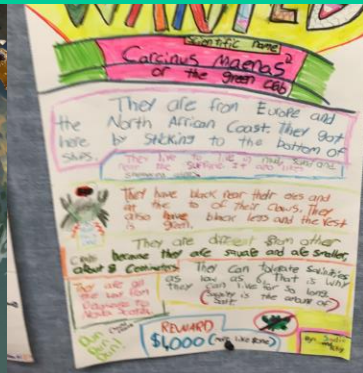 WANTED
Scientific name
Carcinus Maenas
or the green crab
They are from Europe and
the North African Coast. They got
here by sticking to the bottom of
ships.
They live to live in mud, sand and
near the surface. It also likes
They have black near their eies and
at the to of their claws. They
also have black legs and the rest
is green.
They are diffrent from other
crab because they are square and are smaller,
about 8 Centimeters
They can tolerate salinities
as low as 6. That is why
they can live for so long.
(Salinity is the amount of
salt)
They are all
the way from
to
Nova Scotia.
Dun
Dun
Dun!
REWARD
$1,000
By: